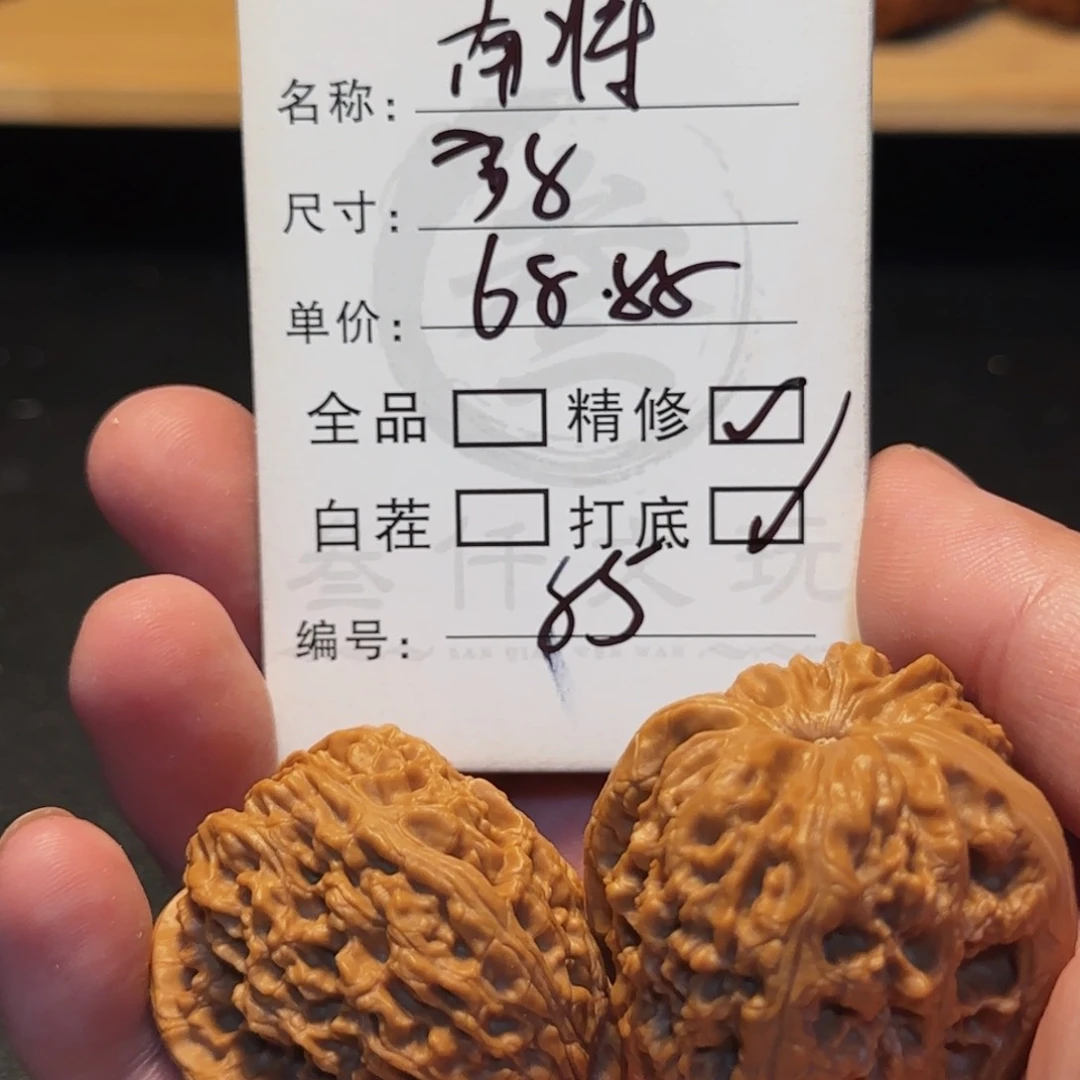 名称：南将
尺寸：38
单价：68.88
全品 精修 ✓
白茬 打底 ✓
叁仟文玩
SAN QIAN WEN WAN
编号：85